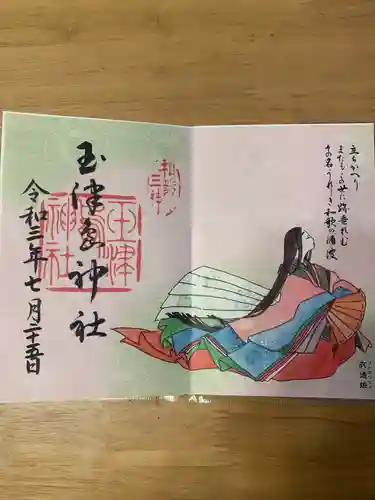 立ちかへり
またもこの世に跡垂れむ
その名うれしき和歌の浦波
衣通姫
和歌
三神
玉津島神社
玉津
島
神社
令和三年七月二十五日